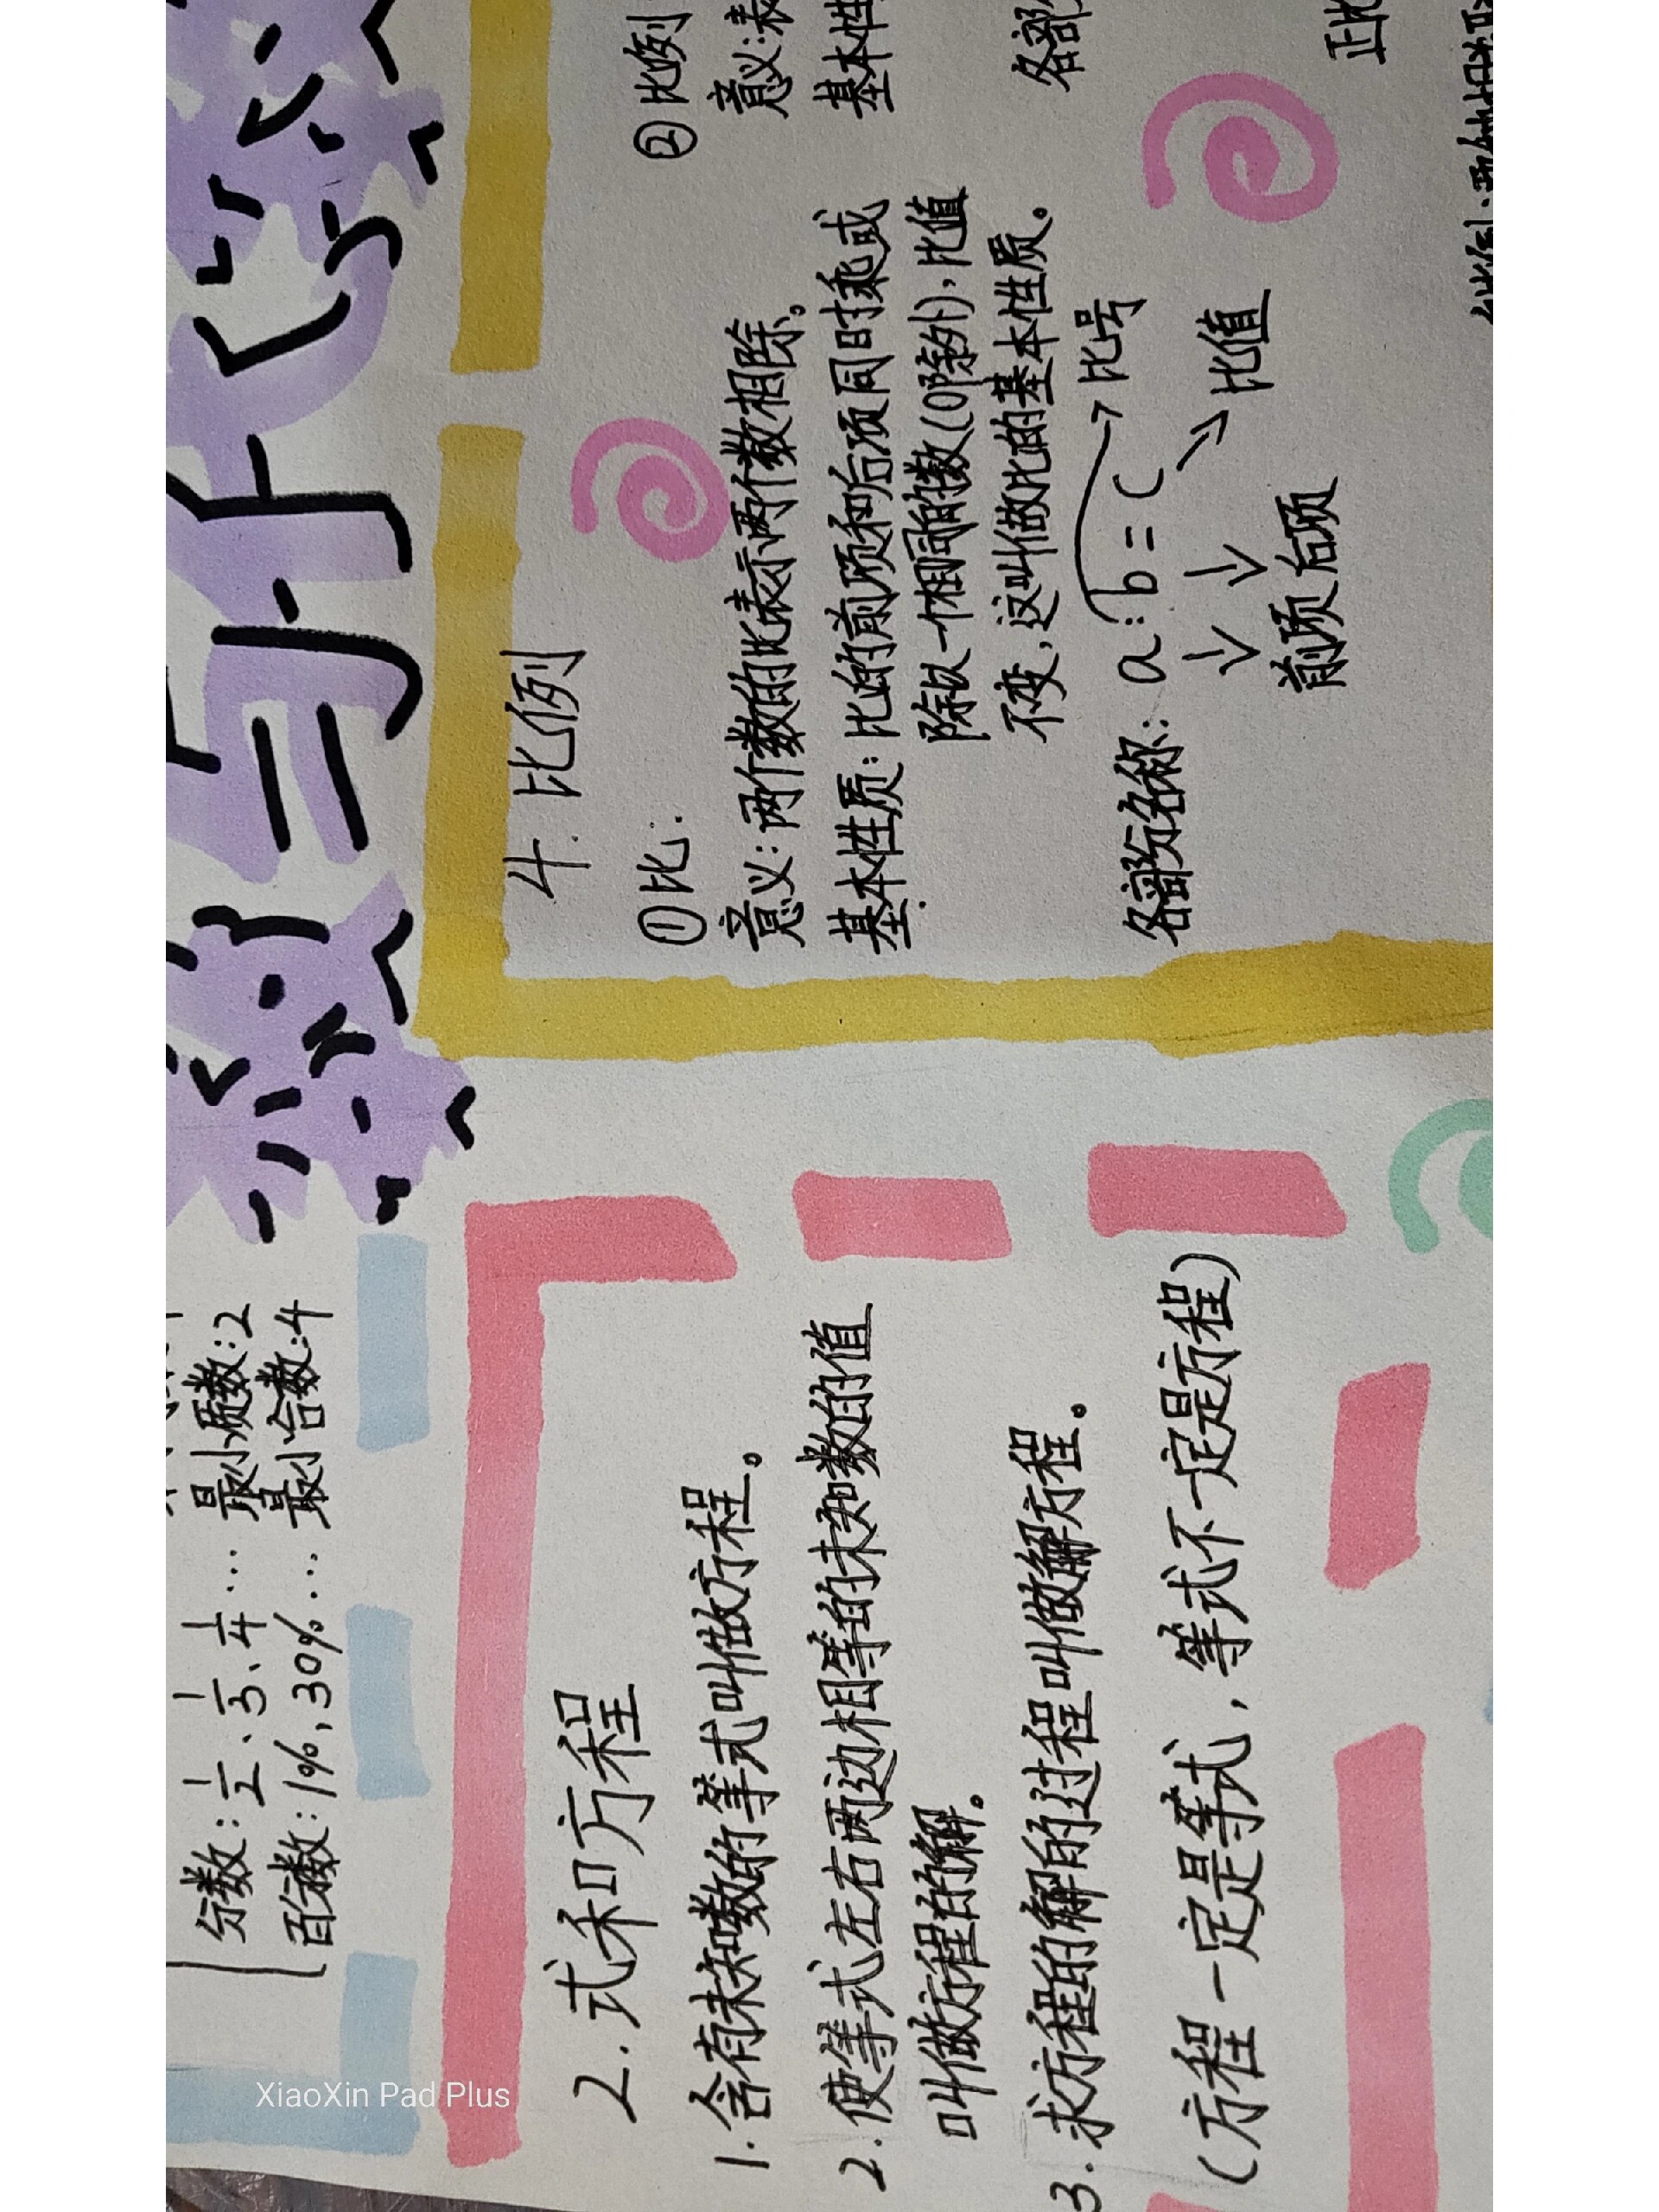 分数：1/2、1/3、1/4 … 最小质数：2
百分数：1%，30% … 最小合数：4
2. 式和方程
1. 含有未知数的等式叫做方程。
2. 使等式左右两边相等的未知数的值
叫做方程的解。
3. 求方程的解的过程叫做解方程。
（方程一定是等式，等式不一定是方程）
4. 比例
①比：
意义：两个数的比表示两个数相除。
基本性质：比的前项和后项同时乘或
除以一个相同的数（0除外），比值
不变，这叫做比的基本性质。
比号
各部分名称：a：b＝c
比值
前项 后项
②比例
意义：表
基本性
各部
正比
XiaoXin Pad Plus